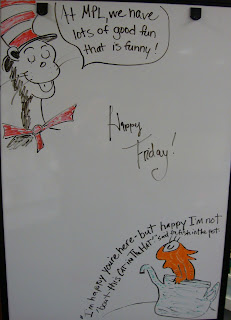 At MPL, we have
lots of good fun
that is funny!
Happy
Friday!
"I'm happy you're here - but happy I'm not
about this Cat in the Hat" said the fish in the pot.